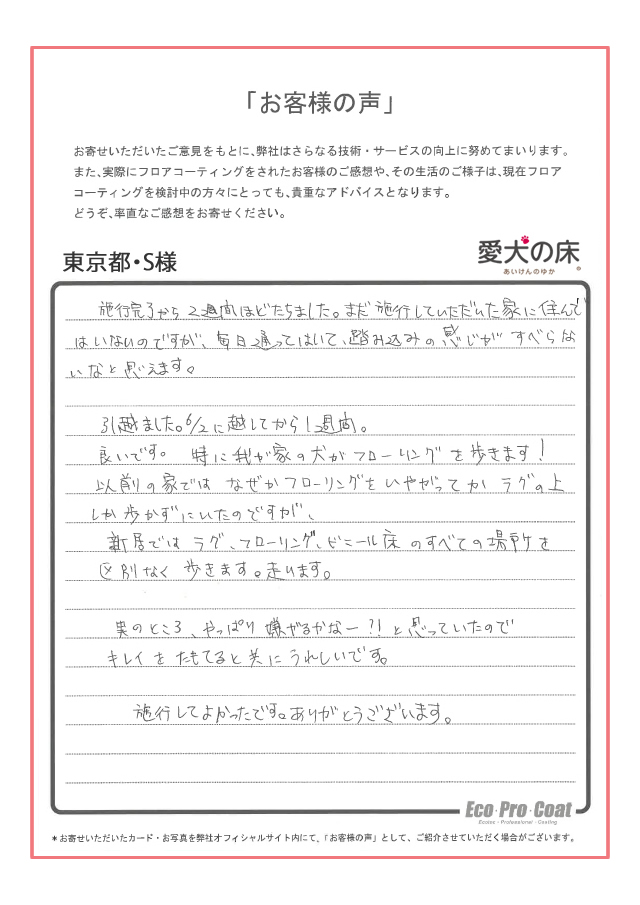 「お客様の声」
お寄せいただいたご意見をもとに、弊社はさらなる技術・サービスの向上に努めてまいります。
また、実際にフロアコーティングをされたお客様のご感想や、その生活のご様子は、現在フロア
コーティングを検討中の方々にとっても、貴重なアドバイスとなります。
どうぞ、率直なご感想をお寄せください。
東京都・S様
愛犬の床
あいけんのゆか
施行完了から2週間ほどたちました。まだ施行していただいた家に住んで
はいないのですが、毎日通ってはいて、踏み込みの感じがすべらな
いなと思えます。
引越ました。6/2に越してから1週間。
良いです。特に我が家の犬がフローリングを歩きます!
以前の家ではなぜかフローリングをいやがってかラグの上
しか歩かずにいたのですが、
新居ではラグ、フローリング、ビニール床のすべての場所を
区別なく歩きます。走ります。
実のところ、やっぱり嫌がるかなー?!と思っていたので
キレイをたもてると共にうれしいです。
施行してよかったです。ありがとうございます。
Eco・Pro・Coat
Ecotec・Professional・Coating
*お寄せいただいたカード・お写真を弊社オフィシャルサイト内にて、「お客様の声」として、ご紹介させていただく場合がございます。